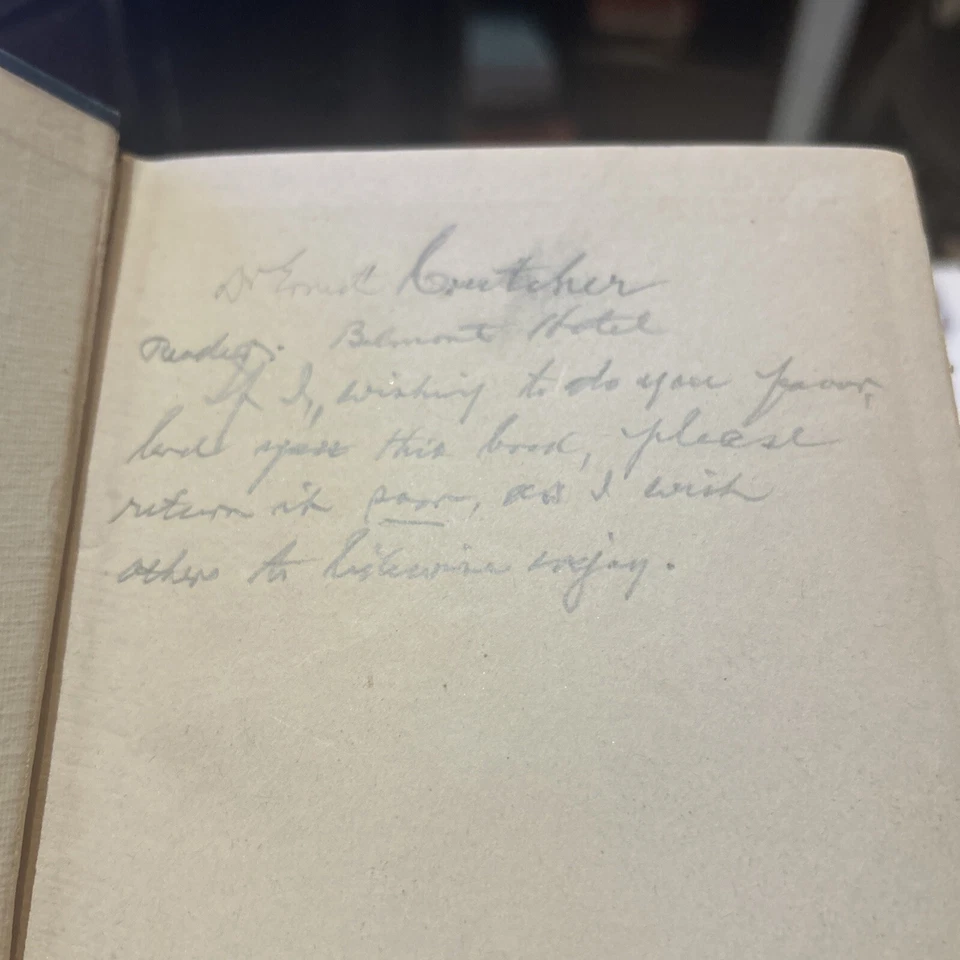 Dr Ernest Crutcher
Reader. Belmont Hotel
If I, wishing to do you favor,
lend you this book, please
return it soon, as I wish
others to likewise enjoy.